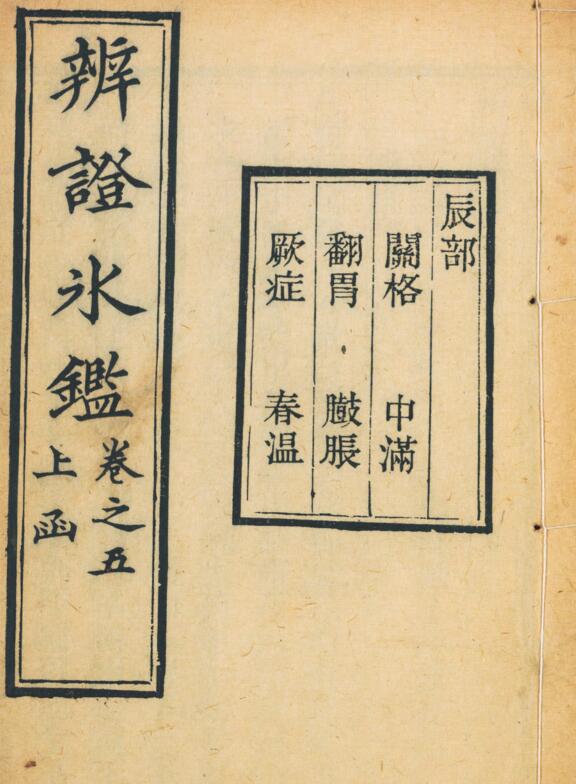 辰部
關格 中滿
翻胃 臌脹
厥症 春温
辨證氷鑑
卷之五
上函